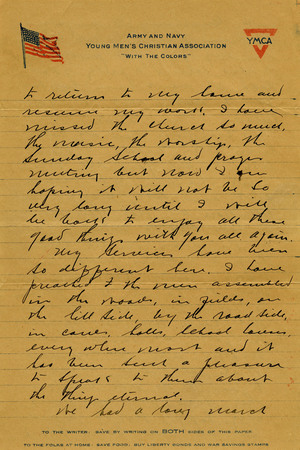 ARMY AND NAVY
YOUNG MEN'S CHRISTIAN ASSOCIATION
"WITH THE COLORS"
YMCA
to return to my home and
resume my work. I have
missed the church so much,
the music, the worship, the
Sunday School and prayer
meeting but now I am
hoping it will not be so
very long until I will
be back to enjoy all these
good things with you all again.
My services have been
so different here. I have
preached to the men assembled
in the woods, in fields, on
the hill side, by the road side,
in caves, halls, school houses,
every where most and it
has been such a pleasure
to speak to them about
the things eternal.
We had a long march
TO THE WRITER: SAVE BY WRITING ON BOTH SIDES OF THIS PAPER
TO THE FOLKS AT HOME: SAVE FOOD, BUY LIBERTY BONDS AND WAR SAVINGS STAMPS